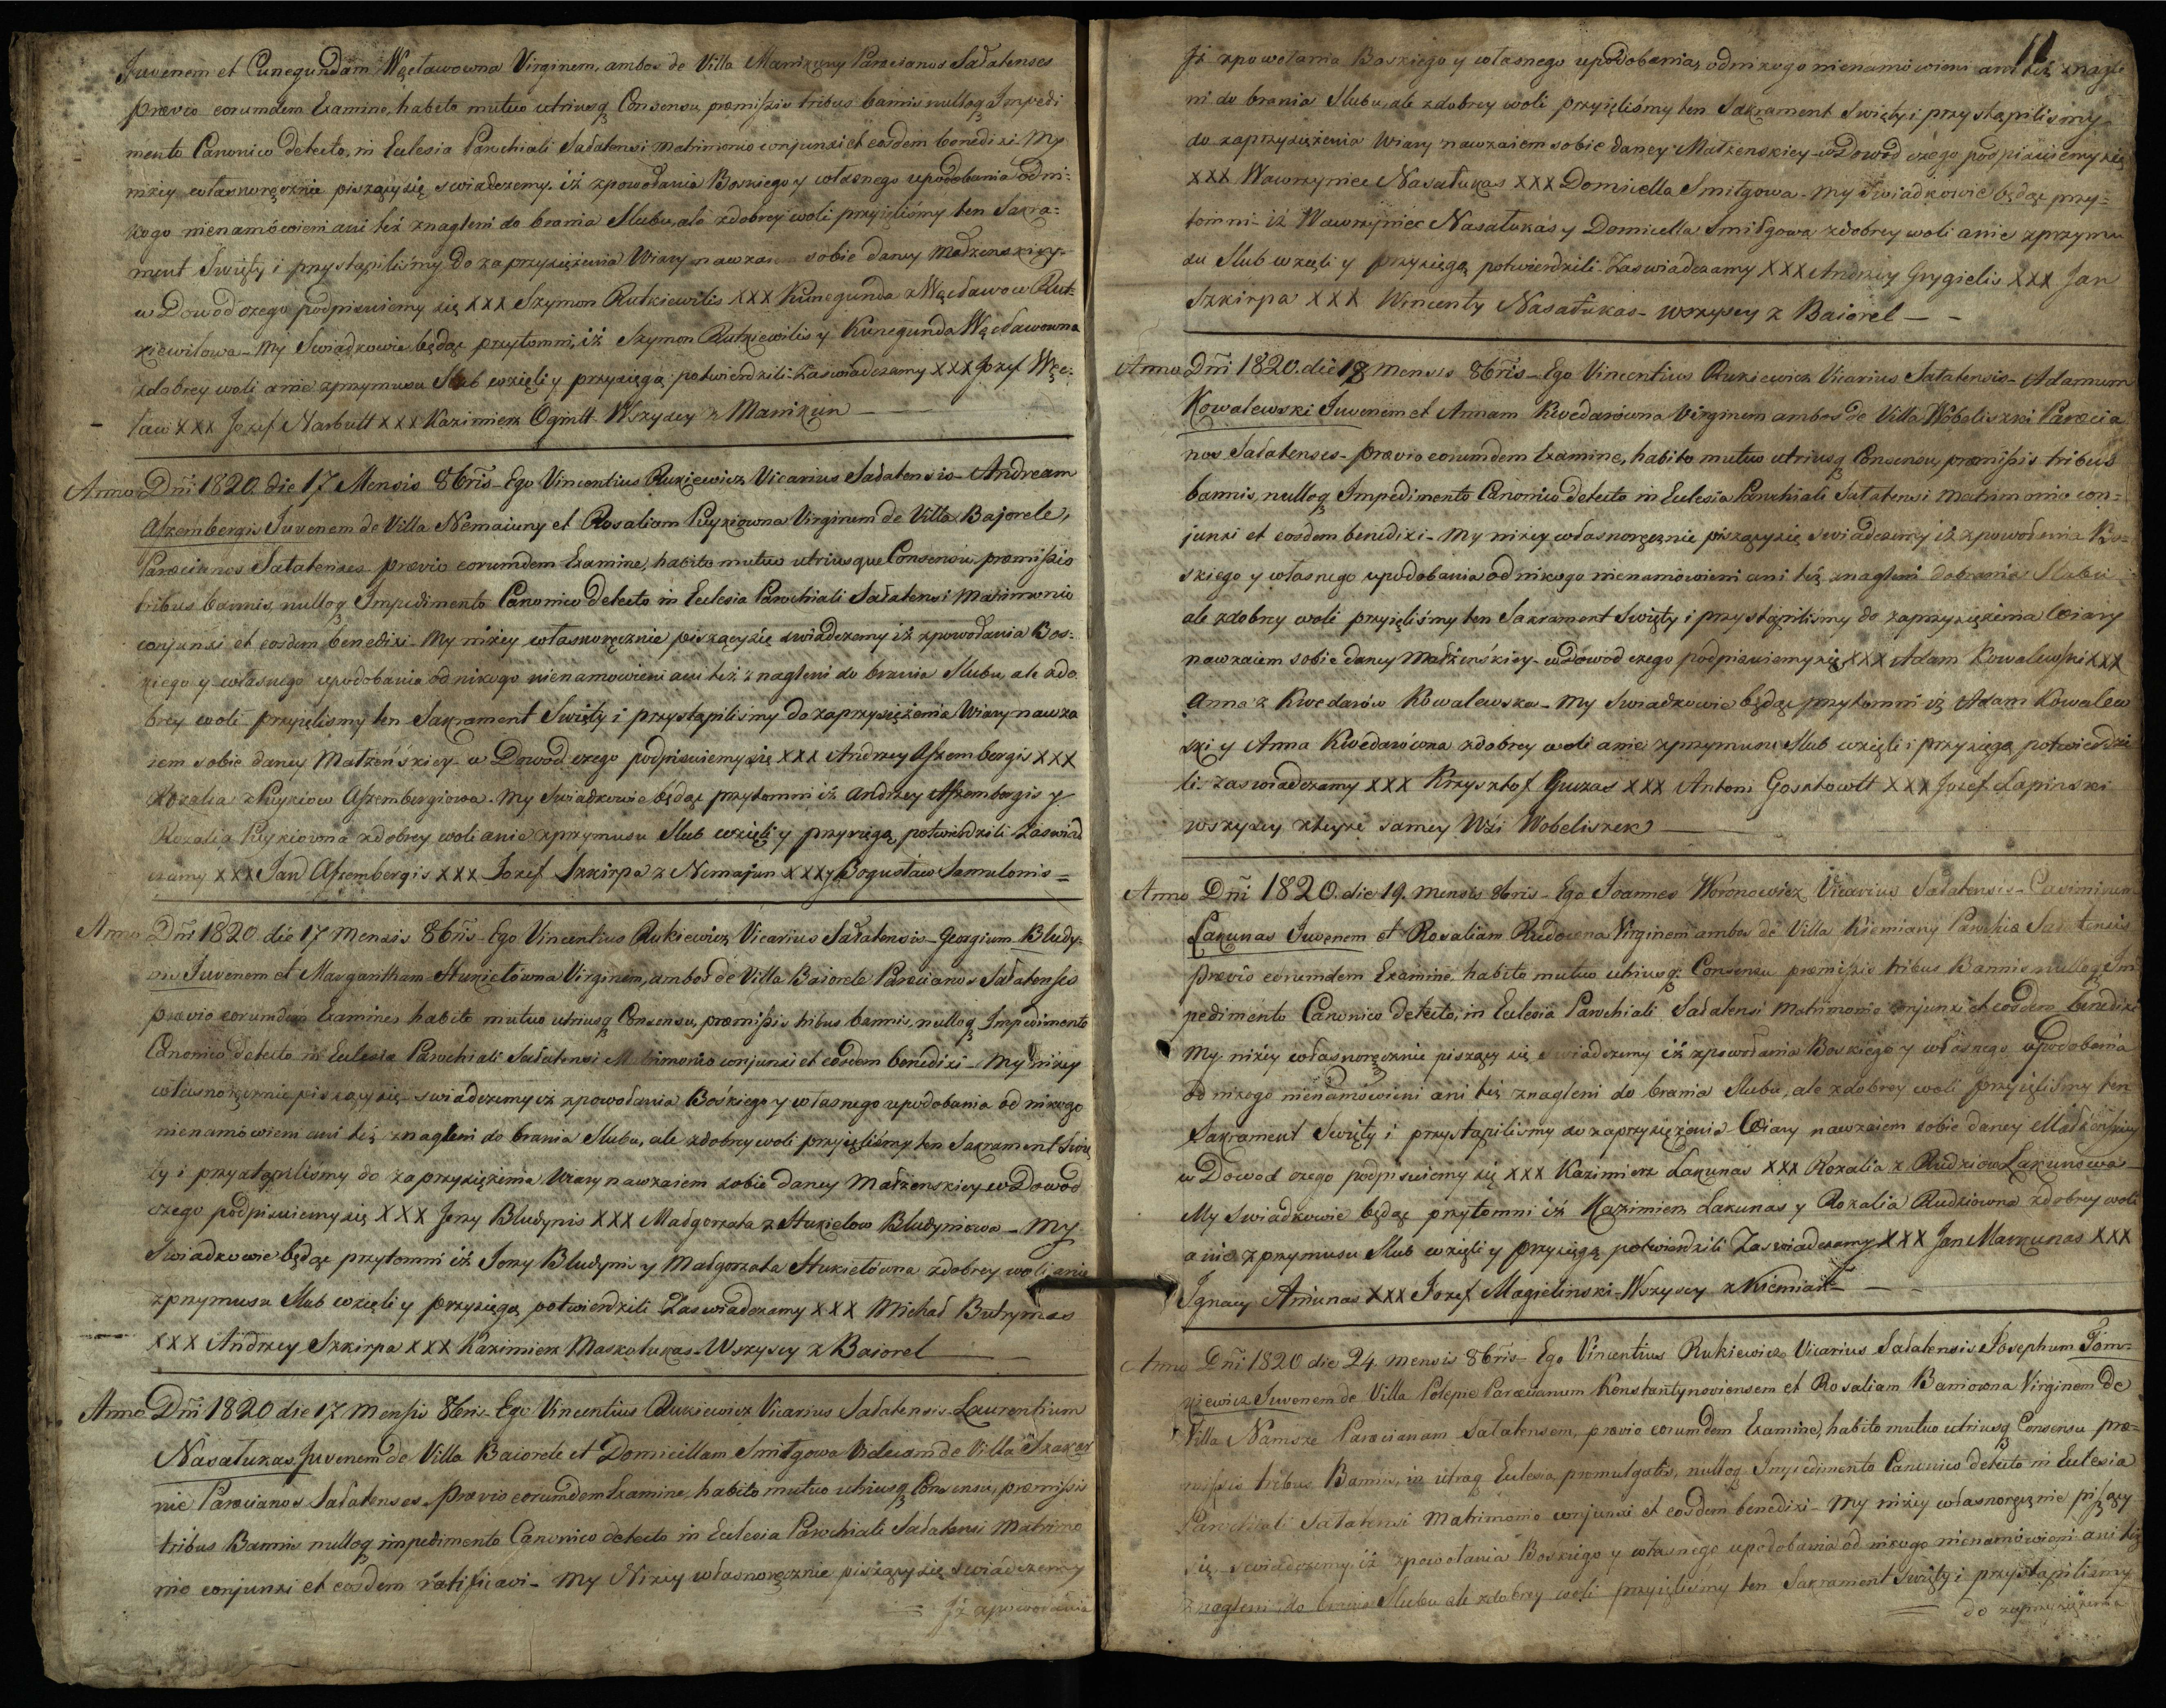 Juvenem et Cunegundam Węcławowna Virginem, ambos de Villa Manikuny Paraecianos Sałatenses
praevio eorumdem Examine, habito mutuo utriusq Consensu, praemissis tribus bannis nulloq Impedi
mento Canonico detecto, in Eclesia Parochiali Sałatensi Matrimonio conjunxi et eosdem benedixi - My
niżey własnoręcznie piszący się swiadczemy, iż zpowołania Boskiego y własnego upodobania od ni:
kogo nienamówieni ani też znagleni do brania Slubu, ale zdobrey woli przyięliśmy ten Sakra:
ment Swięty i przystąpiliśmy do zaprzysiężenia Wiary nawzaiem sobie daney Małżenskiey
w Dowód czego podpisuiemy się XXX Szymon Rutkiewilis XXX Kunegunda z Węcławow Rut:
kiewilowa - My Swiadkowie będąc przytomni, iż Szymon Rutkiewilis y Kunegunda Węcławowna
zdobrey woli a nie zprzymusu Slub wzięli y przysięgą potwierdzili - Zaswiadczamy XXX Jozef Węc:
ław XXX Jozef Narbutt XXX Kazimierz Ogintt - Wszyscy z Manikun
Anno Dni 1820 die 17 Mensis 8bris - Ego Vincentius Rukiewicz Vicarius Sałatensis - Andream
Aszembergis Juvenem de Villa Nemaiuny et Rosaliam Puykiowna Virginem de Villa Bajorele,
Paraecianos Sałatenses praevio eorumdem Examine, habito mutuo utriusque Consensu praemissis
tribus bannis, nulloq Impedimento Canonico detecto in Eclesia Parochiali Sałatensi Matrimonio
conjunxi et eosdem benedixi - My niżey własnoręcznie piszący się swiadczemy iż zpowołania Bos:
kiego y własnego upodobania od nikogo nienamowieni ani też znagleni do brania Slubu, ale zdo
brey woli przyięlismy ten Sakrament Swięty i przystąpiliśmy do zaprzysiężenia Wiary nawza
iem sobie daney Małżeńskiey - w Dowód czego podpisuiemy się XXX Andrzey Aszembergis XXX
Rozalia z Puykiow Aszembergiowa - My Swiadkowie będąc przytomni iż Andrzey Aszembergis y
Rozalia Puykiowna zdobrey woli a nie zprzymusu Slub wzięli y przysięgą potwierdzili Zaswiad
czamy XXX Jan Aszembergis XXX Jozef Szkirpa z Nemajun XXX y Bogusław Samulonis =
Anno Dni 1820 die 17 Mensis 8bris - Ego Vincentius Rukiewicz Vicarius Sałatensis - Georgium Bludy:
nis Juvenem et Margaritham Stukielówna Virginem, ambos de Villa Baiorele Paraecianos Sałatenses
praevio eorumdem Examine, habito mutuo utriusq Consensu, praemissis tribus bannis, nulloq Impedimento
Canonico detecto in Eclesia Parochiali Sałatensi Matrimonio conjunxi et eosdem benedixi - My niżey
własnoręcznie piszący się swiadczemy iż zpowołania Boskiego y własnego upodobania od nikogo
nienamówieni ani też znagleni do brania Slubu, ale zdobrey woli przyięliśmy ten Sakrament Swię
ty i przystąpilismy do zaprzysiężenia Wiary nawzaiem sobie daney Małżenskiey w Dowod
czego podpisuiemy się XXX Jerzy Bludynis XXX Małgorzata z Stukielow Bludyniowa - My
Swiadkowie będąc przytomni iż Jerzy Bludynis y Małgorzata Stukielówna zdobrey woli a nie
zprzymusu Slub wzięli y przysięgą potwierdzili Zaswiadczamy XXX Michał Butrymas
XXX Andrzey Szkirpa XXX Kazimierz Maskołukas - Wszyscy z Baiorel
Anno Dni 1820 die 17 Mensis 8bris - Ego Vincentius Rukiewicz Vicarius Sałatensis - Laurentium
Nasałukas Juvenem de Villa Baiorele et Domicellam Smilgowa Viduam de Villa
nie Paraecianos Sałatenses - praevio eorumdem Examine, habito mutuo utriusq Consensu, praemissis
tribus Bannis nulloq impedimento Canonico detecto in Eclesia Parochiali Sałatensi Matrimo
nio conjunxi et eosdem ratificavi - My Niżey własnoręcznie piszący się swiadczemy
Jż zpowołania
11
Jż zpowołania Boskiego y własnego upodobania, od nikogo nienamówieni ani też znagle
ni do brania Slubu, ale zdobrey woli przyięliśmy ten Sakrament Swięty i przystąpilismy
do zaprzysiężenia Wiary nawzaiem sobie daney Małżenskiey - w Dowód czego podpisuiemy się
XXX Wawrzyniec Nasałukas XXX Domicella Smilgowa - My Swiadkowie będąc przy:
tomni - iż Wawrzyniec Nasałukas y Domicella Smilgowa zdobrey woli a nie zprzymu
su Slub wzięli y przysięgą potwierdzili - Zaswiadczamy XXX Andrzey Grygielis XXX Jan
Szkirpa XXX Wincenty Nasałukas - Wszyscy z Baiorel
Anno Dni 1820 die 18 Mensis 8bris - Ego Vincentius Rukiewicz Vicarius Sałatensis - Adamum
Kowalewski Juvenem et Annam Kwedarówna Virginem ambos de Villa Wobeliszki Paraecia
nos Sałatenses - praevio eorumdem Examine, habito mutuo utriusq Consensu, praemissis tribus
bannis, nulloq Impedimento Canonico detecto in Eclesia Parochiali Sałatensi Matrimonio con:
junxi et eosdem benedixi - My niżey własnoręcznie piszący się swiadczemy iż zpowołania Bo:
skiego y własnego upodobania od nikogo nienamowieni ani też znagleni do brania Slubu
ale zdobrey woli przyięliśmy ten Sakrament Swięty i przystąpiliśmy do zaprzysiężenia Wiary
nawzaiem sobie daney Małżeńskiey - w Dowod czego podpisuiemy się XXX Adam Kowalewski XXX
Anna z Kwedarów Kowalewska - My Swiadkowie będąc przytomni iż Adam Kowalew
ski y Anna Kwedarówna zdobrey woli a nie zprzymusu Slub wzięli i przysięgą potwierdzi
li - Zaswiadczamy XXX Krzysztof Guzas XXX Antoni Gosztowtt XXX Jozef Łapinski
wszyscy zteyże samey Wsi Wobeliszek
Anno Dni 1820 die 19 Mensis 8bris - Ego Joannes Woronowicz Vicarius Sałatensis - Casimirum
Łakunas Juvenem et Rosaliam Rudziowna Virginem ambos de Villa Kiemiany Parochiae Sałatensis
praevio eorumdem Examine, habito mutuo utriusq Consensu praemissis tribus Bannis nulloq Im
pedimento Canonico detecto, in Eclesia Parochiali Sałatensi Matrimonio conjunxi et eosdem benedixi
My niżey własnoręcznie piszący się swiadczemy iż zpowołania Boskiego y własnego upodobania
od nikogo nienamówieni ani też znagleni do brania Slubu, ale zdobrey woli przyięliśmy ten
Sakrament Swięty i przystąpilismy do zaprzysiężenia Wiary nawzaiem sobie daney Małżeńskiey
w Dowod czego podpisuiemy się XXX Kazimierz Łakunas XXX Rozalia z Rudziow Łakunowa
My Swiadkowie będąc przytomni iż Kazimierz Łakunas y Rozalia Rudziowna zdobrey woli
a nie zprzymusu Slub wzięli y przysięgą potwierdzili Zaswiadczamy XXX Jan Markunas XXX
Jgnacy Amunas XXX Jozef Magielinski - Wszyscy z Kiemian
Anno Dni 1820 die 24 Mensis 8bris - Ego Vincentius Rukiewicz Vicarius Sałatensis Josephum Tom:
kiewicz Juvenem de Villa Polepie Paraecianum Konstantynoviensem et Rosaliam Baniowna Virginem de
Villa Namsze Paraecianam Sałatensem, praevio eorumdem Examine, habito mutuo utriusq Consensu prae:
missis tribus Bannis, in utraq Eclesia promulgatis, nulloq Impedimento Canonico detecto in Eclesia
Parochiali Sałatensi Matrimonio conjunxi et eosdem benedixi - My niżey własnoręcznie piszący
się swiadczemy, iż zpowołania Boskiego y własnego upodobania od nikogo nienamówieni ani też
znagleni do brania Slubu ale zdobrey woli przyięlismy ten Sakrament Swięty i przystąpilismy
do zaprzysiężenia